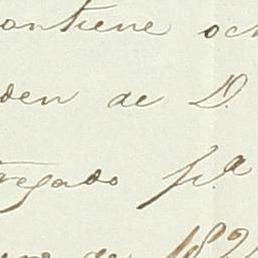 ontiene och
den de D.
tregado p.ª
de 182